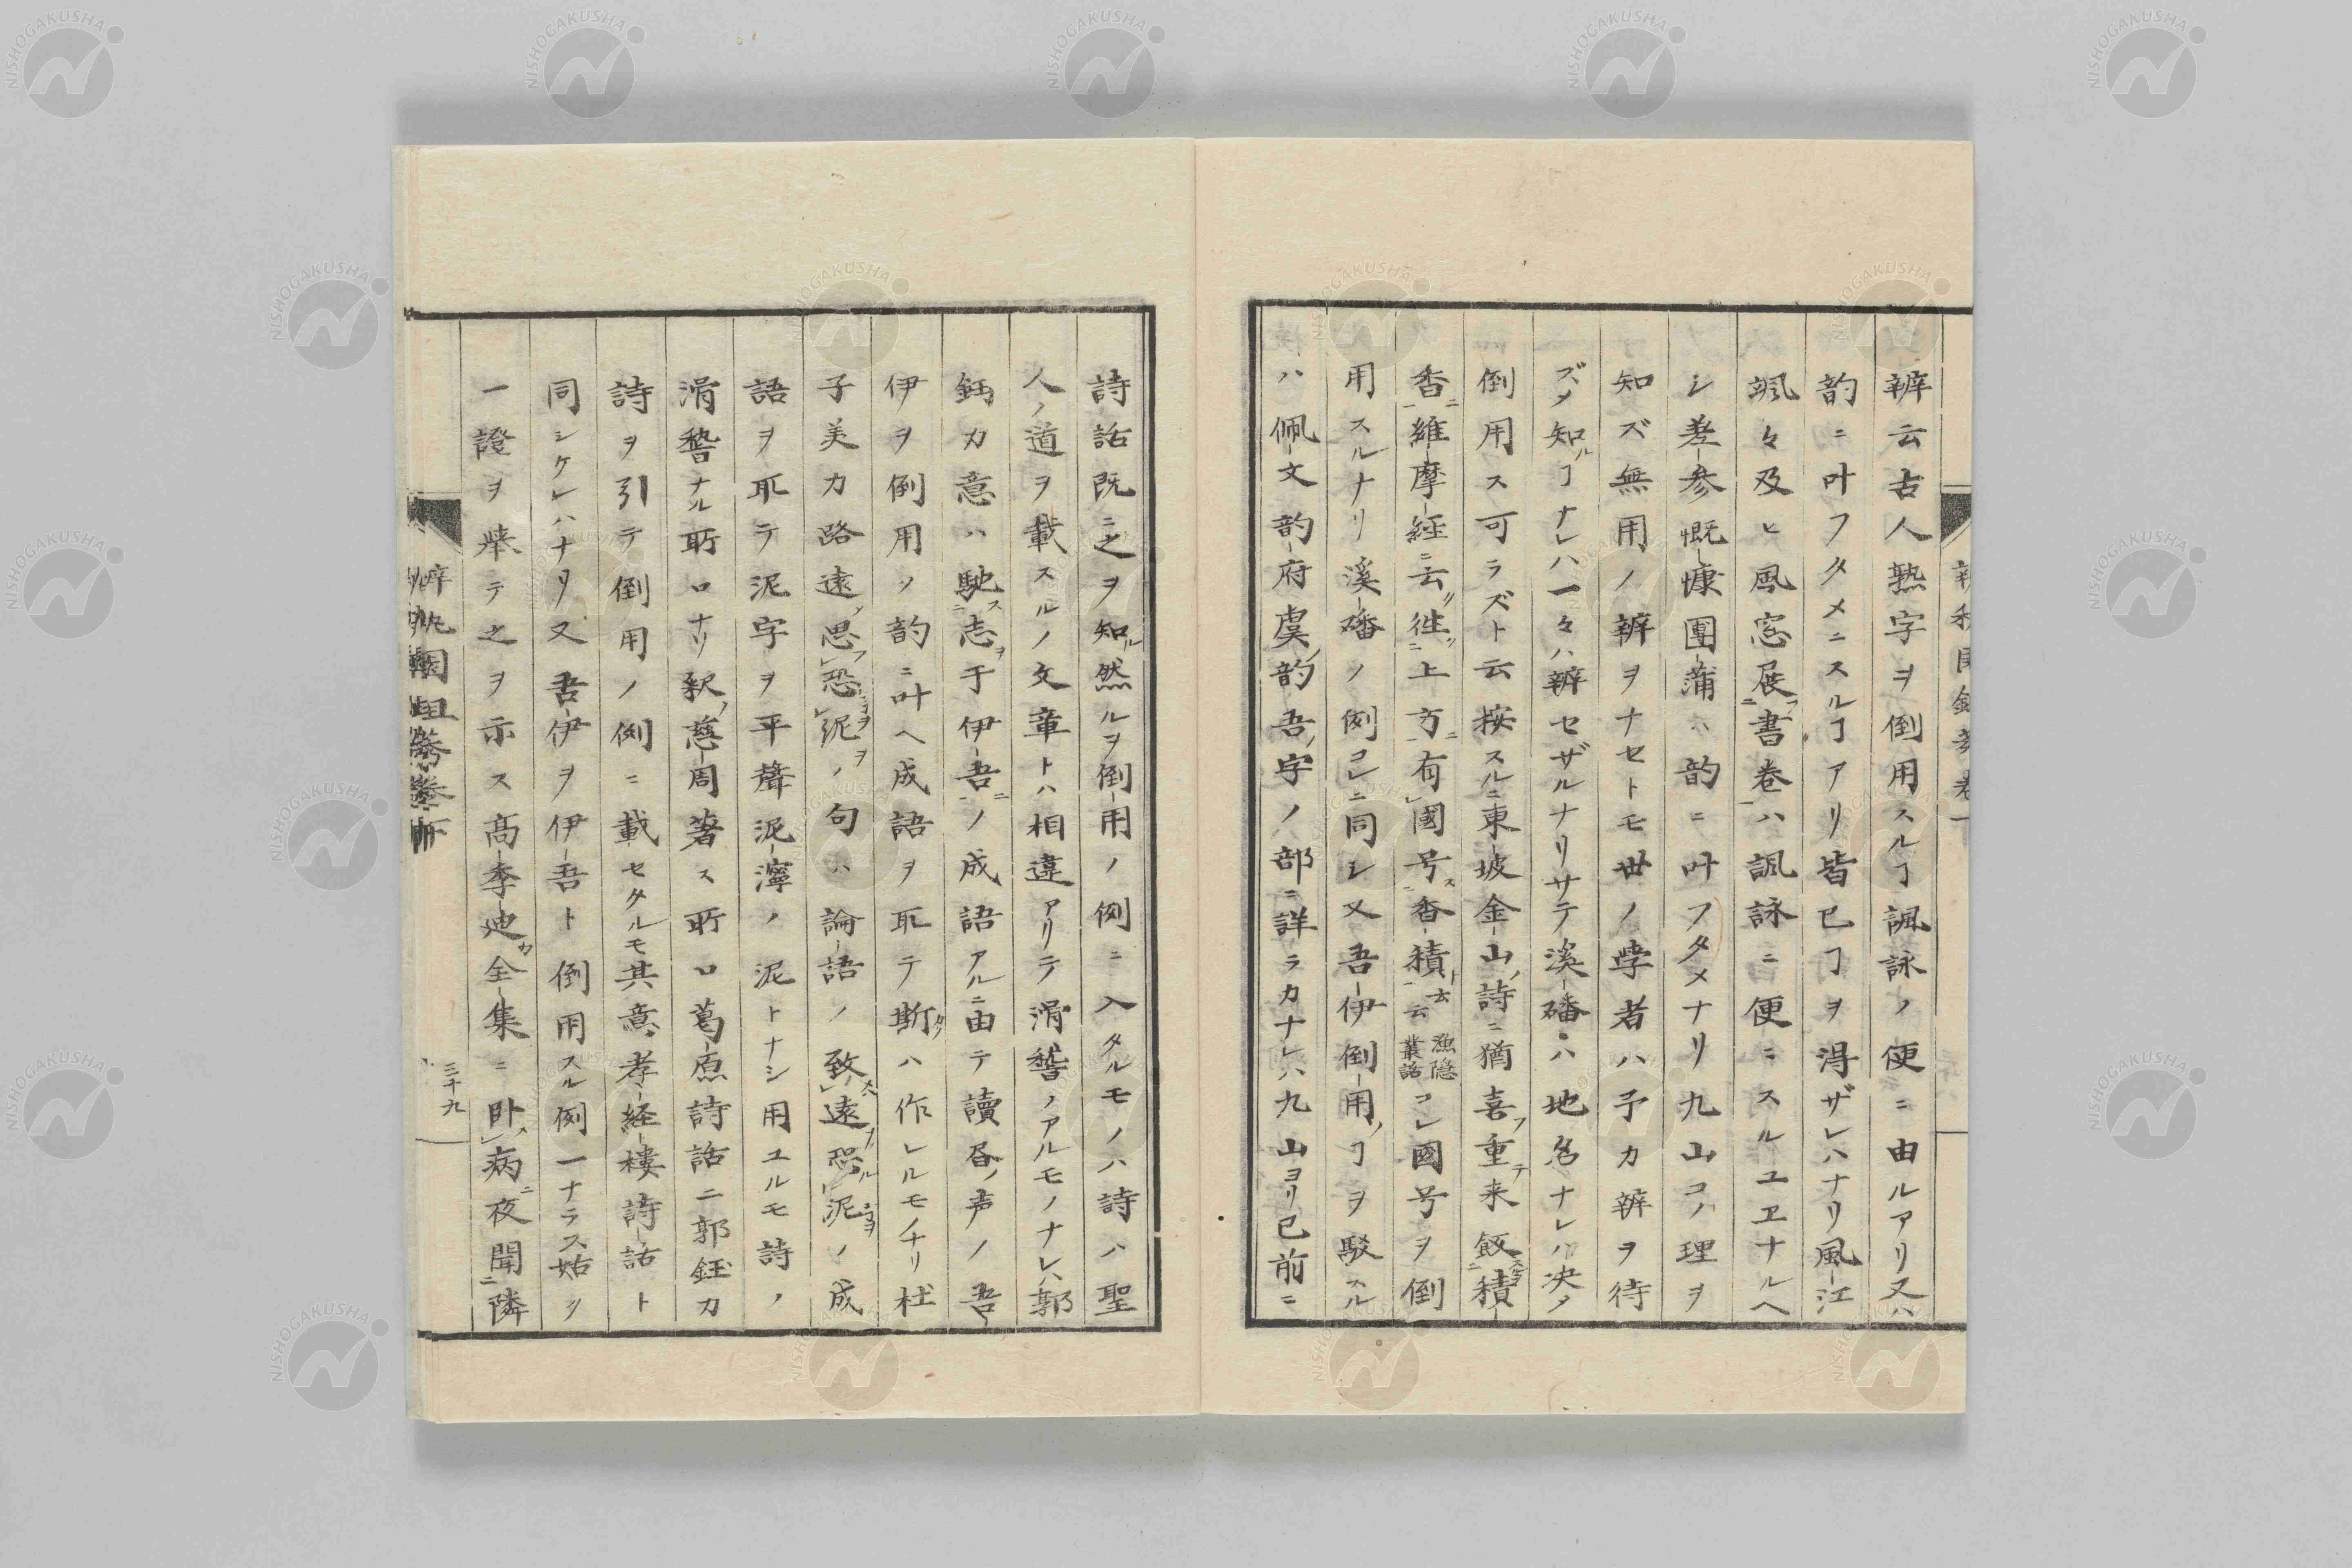 辨云古人熟字ヲ倒用スルヿ諷詠ノ便ニ由ルアリ又ハ
韵ニ叶フタメニスルヿアリ皆已ヿヲ得ザレハナリ風江
颯々及ヒ風窓展フ書卷ハ諷詠ニ便ニスルユヱナルヘ
シ差参慨慷團蒲ハ韵ニ叶フタメナリ九山コノ理ヲ
知ズ無用ノ辨ヲナセトモ世ノ学者ハ予カ辨ヲ待
ズメ知ルヿナレハ一々ハ辨セザルナリサテ溪磻ハ地名ナレハ决メ
倒用ス可ラズト云按スルニ東坡金山ノ詩ニ猶喜フ重テ来飯積
香維摩經ニ云徃上方有國号香積ト云云漁隠叢話コレ國号ヲ倒
用スルナリ溪磻ノ例コレニ同シ又吾伊倒用ノヿヲ駁スル
ハ佩文韵府虞ノ韵吾ノ字ノ部ニ詳ラカナレハ九山ヨリ已前ニ
詩話既ニ之ヲ知ル然ルヲ倒用ノ例ニ入タルモノハ詩ハ聖
人ノ道ヲ載スルノ文章トハ相違アリテ滑稽ノアルモノナレハ郭
鈺カ意ハ馳ス志ヲ于伊吾ニノ成語アルニ由テ讀昼ノ声ノ吾
伊ヲ倒用ノ韵ニ叶ヘ成語ヲ取テ斯クハ作レルモノナリ杜
子美カ路遠ノ思フ恐泥ノ句ハ論語ノ致遠恐泥ノ成
語ヲ取テ泥字ヲ平聲泥濘ノ泥トナシ用ユルモ詩ノ
滑稽ナル所ロナリ釈ノ慈周著ス所ロ葛原詩話ニ郭鈺カ
詩ヲ引テ倒用ノ例ニ載セタルモ其意孝経樓詩話ト
同シケレハナリ又吾伊ヲ伊吾ト倒用スル例一ナラス姑ク
一證ヲ挙テ之ヲ示ス高季迪カ全集ニ卧メ病ニ夜聞ニ隣
三十九